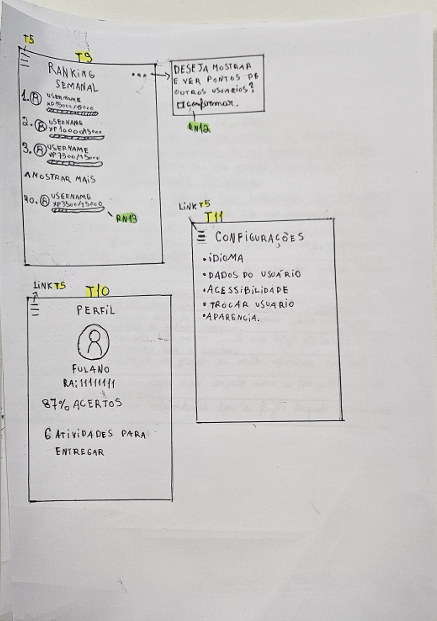 T5
T9
RANKING
SEMANAL
...
1. R USERNAME
XP 15000/15000
2. R USERNAME
XP 10000/15000
3. R USERNAME
XP 7500/15000
^ MOSTRAR MAIS
40. R USERNAME
XP 3500/15000
RN13
DESEJA MOSTRAR
E VER PONTOS DE
OUTROS USUÁRIOS?
Confirmar.
RN12
LINK T5
T11
CONFIGURAÇÕES
• IDIOMA
• DADOS DO USUÁRIO
• ACESSIBILIDADE
• TROCAR USUARIO
• APARENCIA.
LINK T5
T10
PERFIL
FULANO
RA: 11111111
87% ACERTOS
6 ATIVIDADES PARA
ENTREGAR